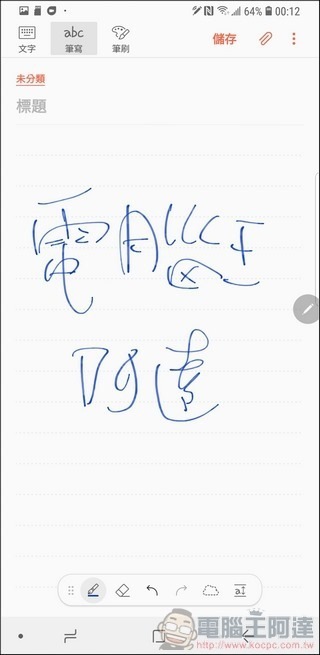 64% 00:12
文字
abc
筆寫
筆刷
儲存
未分類
標題
電腦王
阿達
電腦王阿達
http://www.xocpc.com.tw